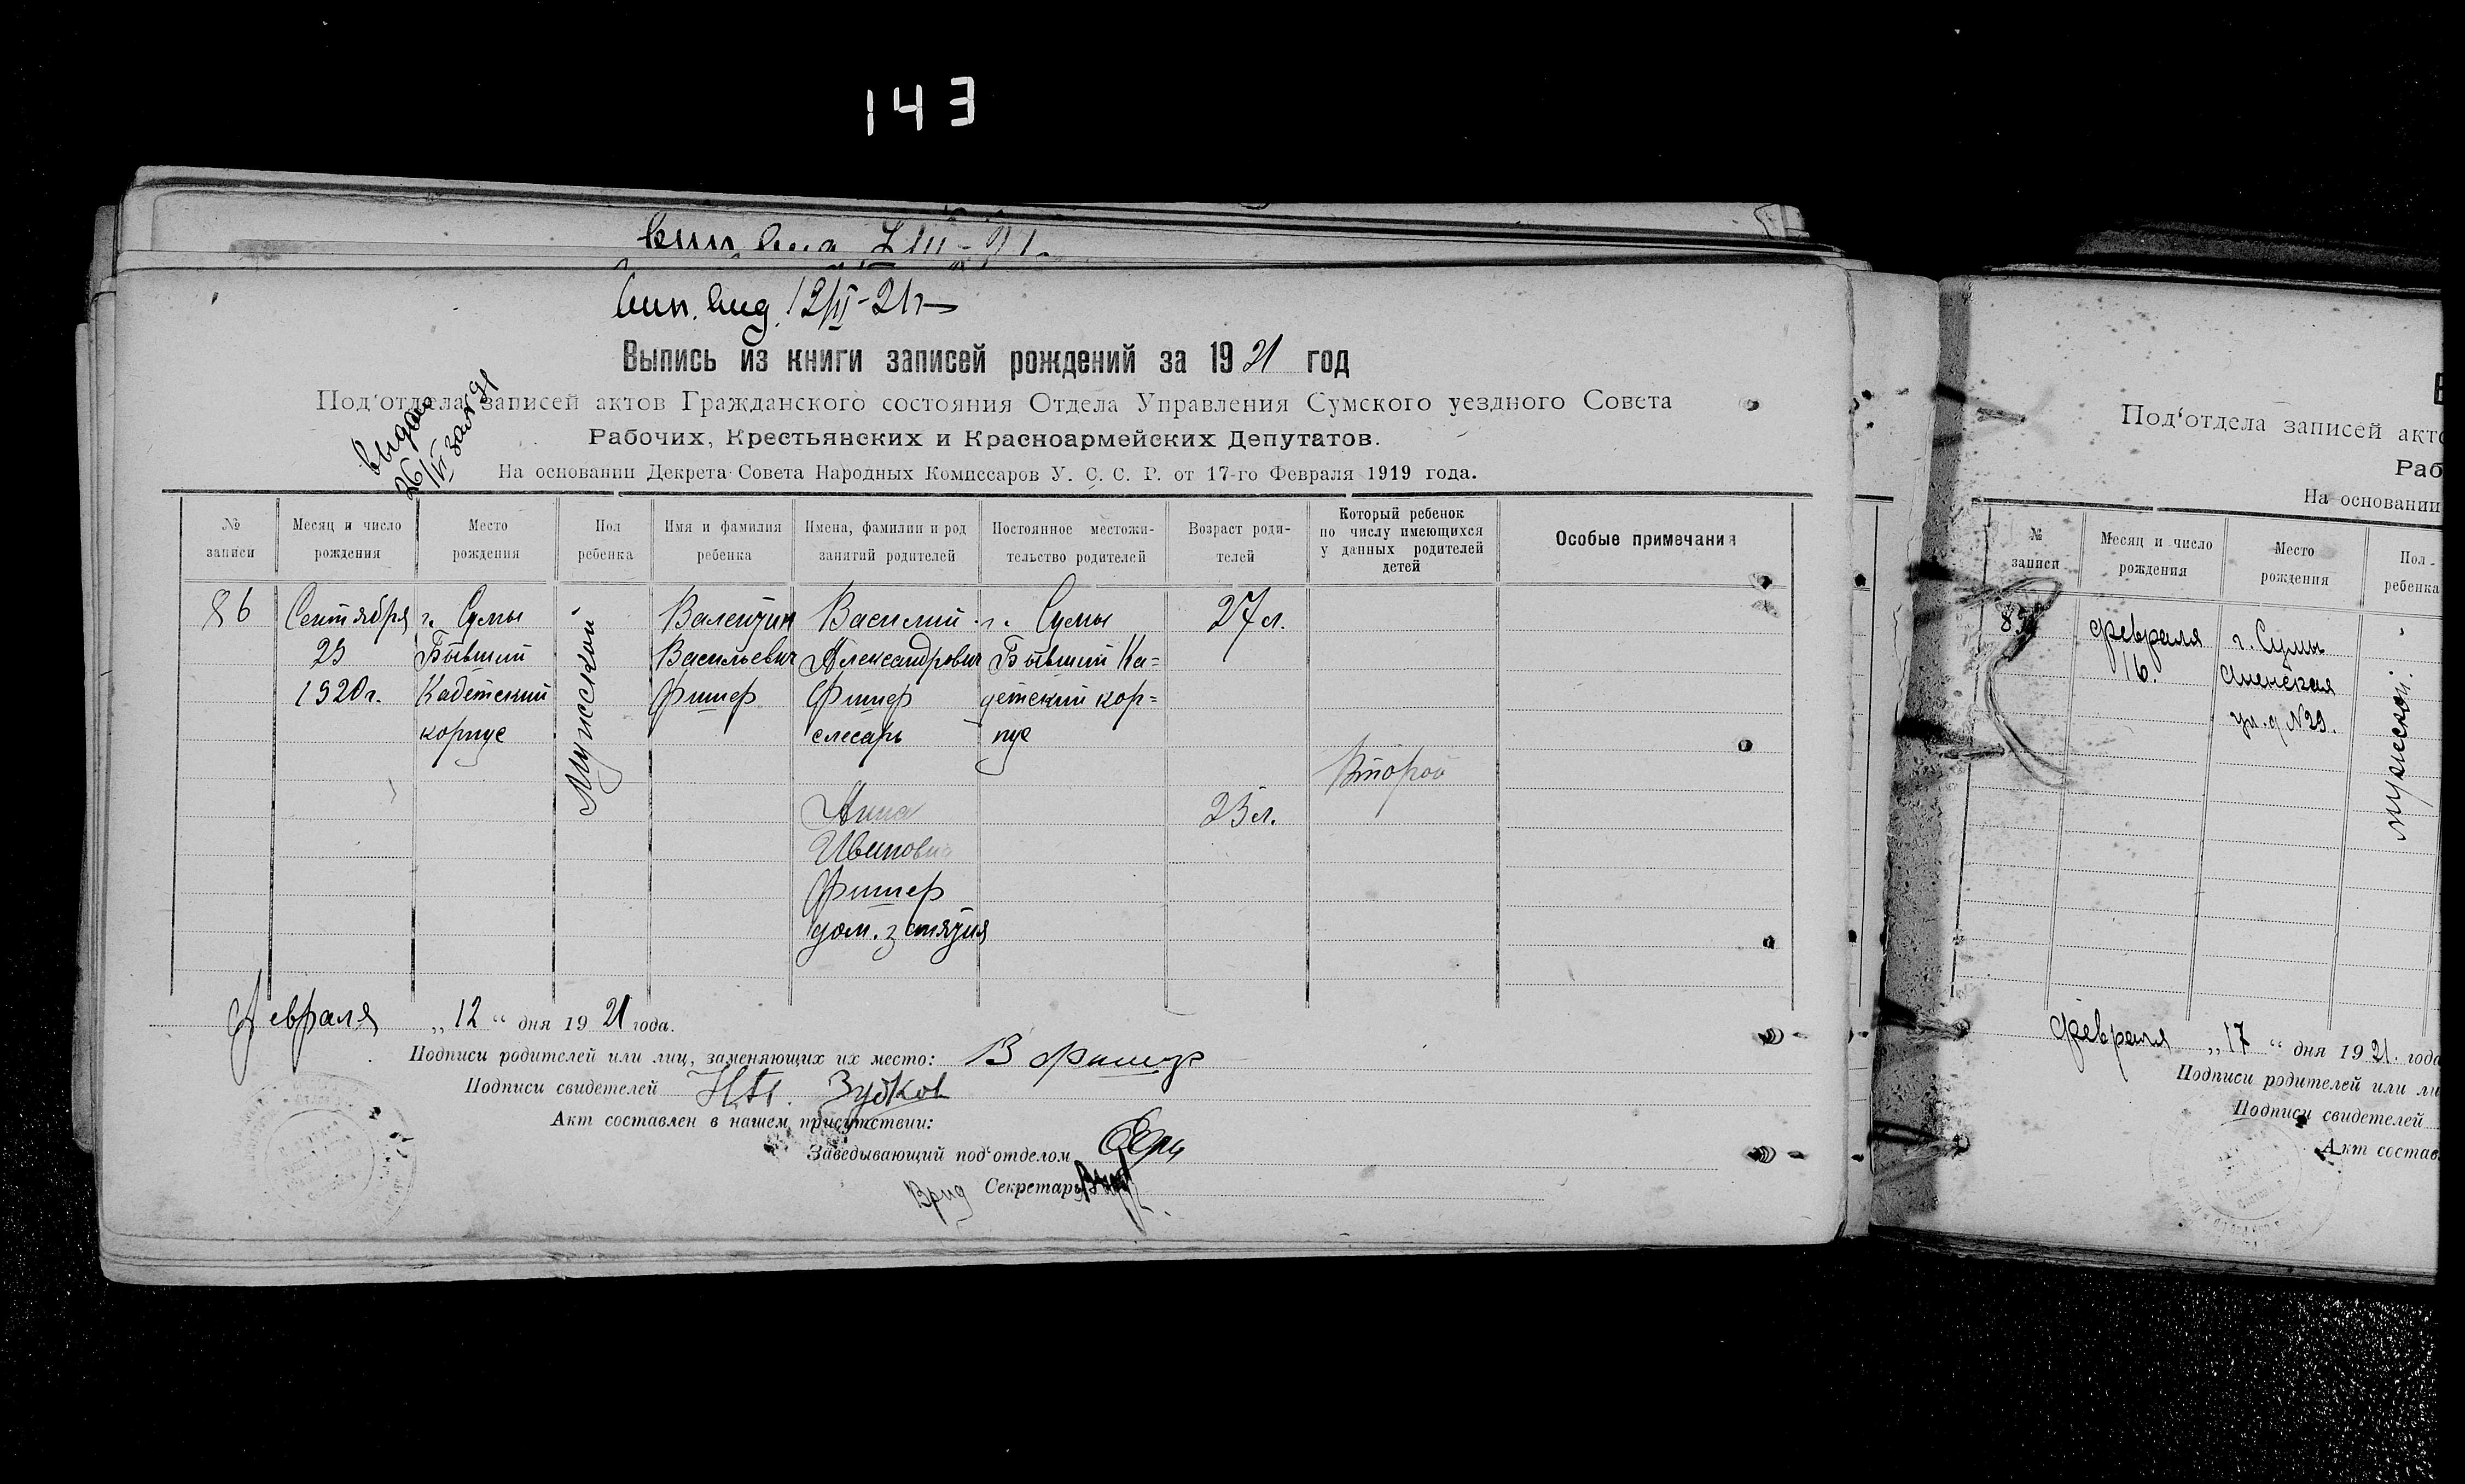 143
вып. выд. 12/II-21 г
Выпись из книги записей рождений за 1921 год
Под‘отдела записей актов Гражданского состояния Отдела Управления Сумского уездного Совета
Рабочих, Крестьянских и Красноармейских Депутатов.
На основании Декрета Совета Народных Комиссаров У. С. С. Р. от 17-го Февраля 1919 года.
№ записи
Месяц и число рождения
Место рождения
Пол ребенка
Имя и фамилия ребенка
Имена, фамилии и род занятий родителей
Постоянное местожительство родителей
Возраст родителей
Который ребенок по числу имеющихся у данных родителей детей
Особые примечания
86
Сентября
23
1920 г.
г. Сумы
Бывший
Кадетский
корпус
Мужской
Валентин
Васильевич
Фишер
Василий
Александрович
Фишер
слесарь
Анна
Ивановна
Фишер
дом. занятия
г. Сумы
Бывший Ка=
детский кор=
пус
27 л.
23 л.
Второй
Февраля „12“ дня 1921 года.
Подписи родителей или лиц, заменяющих их место: В Фишер
Подписи свидетелей Зубков
Акт составлен в нашем присутствии:
Заведывающий под‘отделом
Врид Секретарь
Под‘отдела записей акто
Раб
На основании
№ записи
Месяц и число рождения
Место рождения
Пол ребенка
февраля
16.
г. Сумы
ул. д N 29.
мужской.
февраля „17“ дня 1921. года
Подписи родителей или ли
Подписи свидетелей
Акт состав